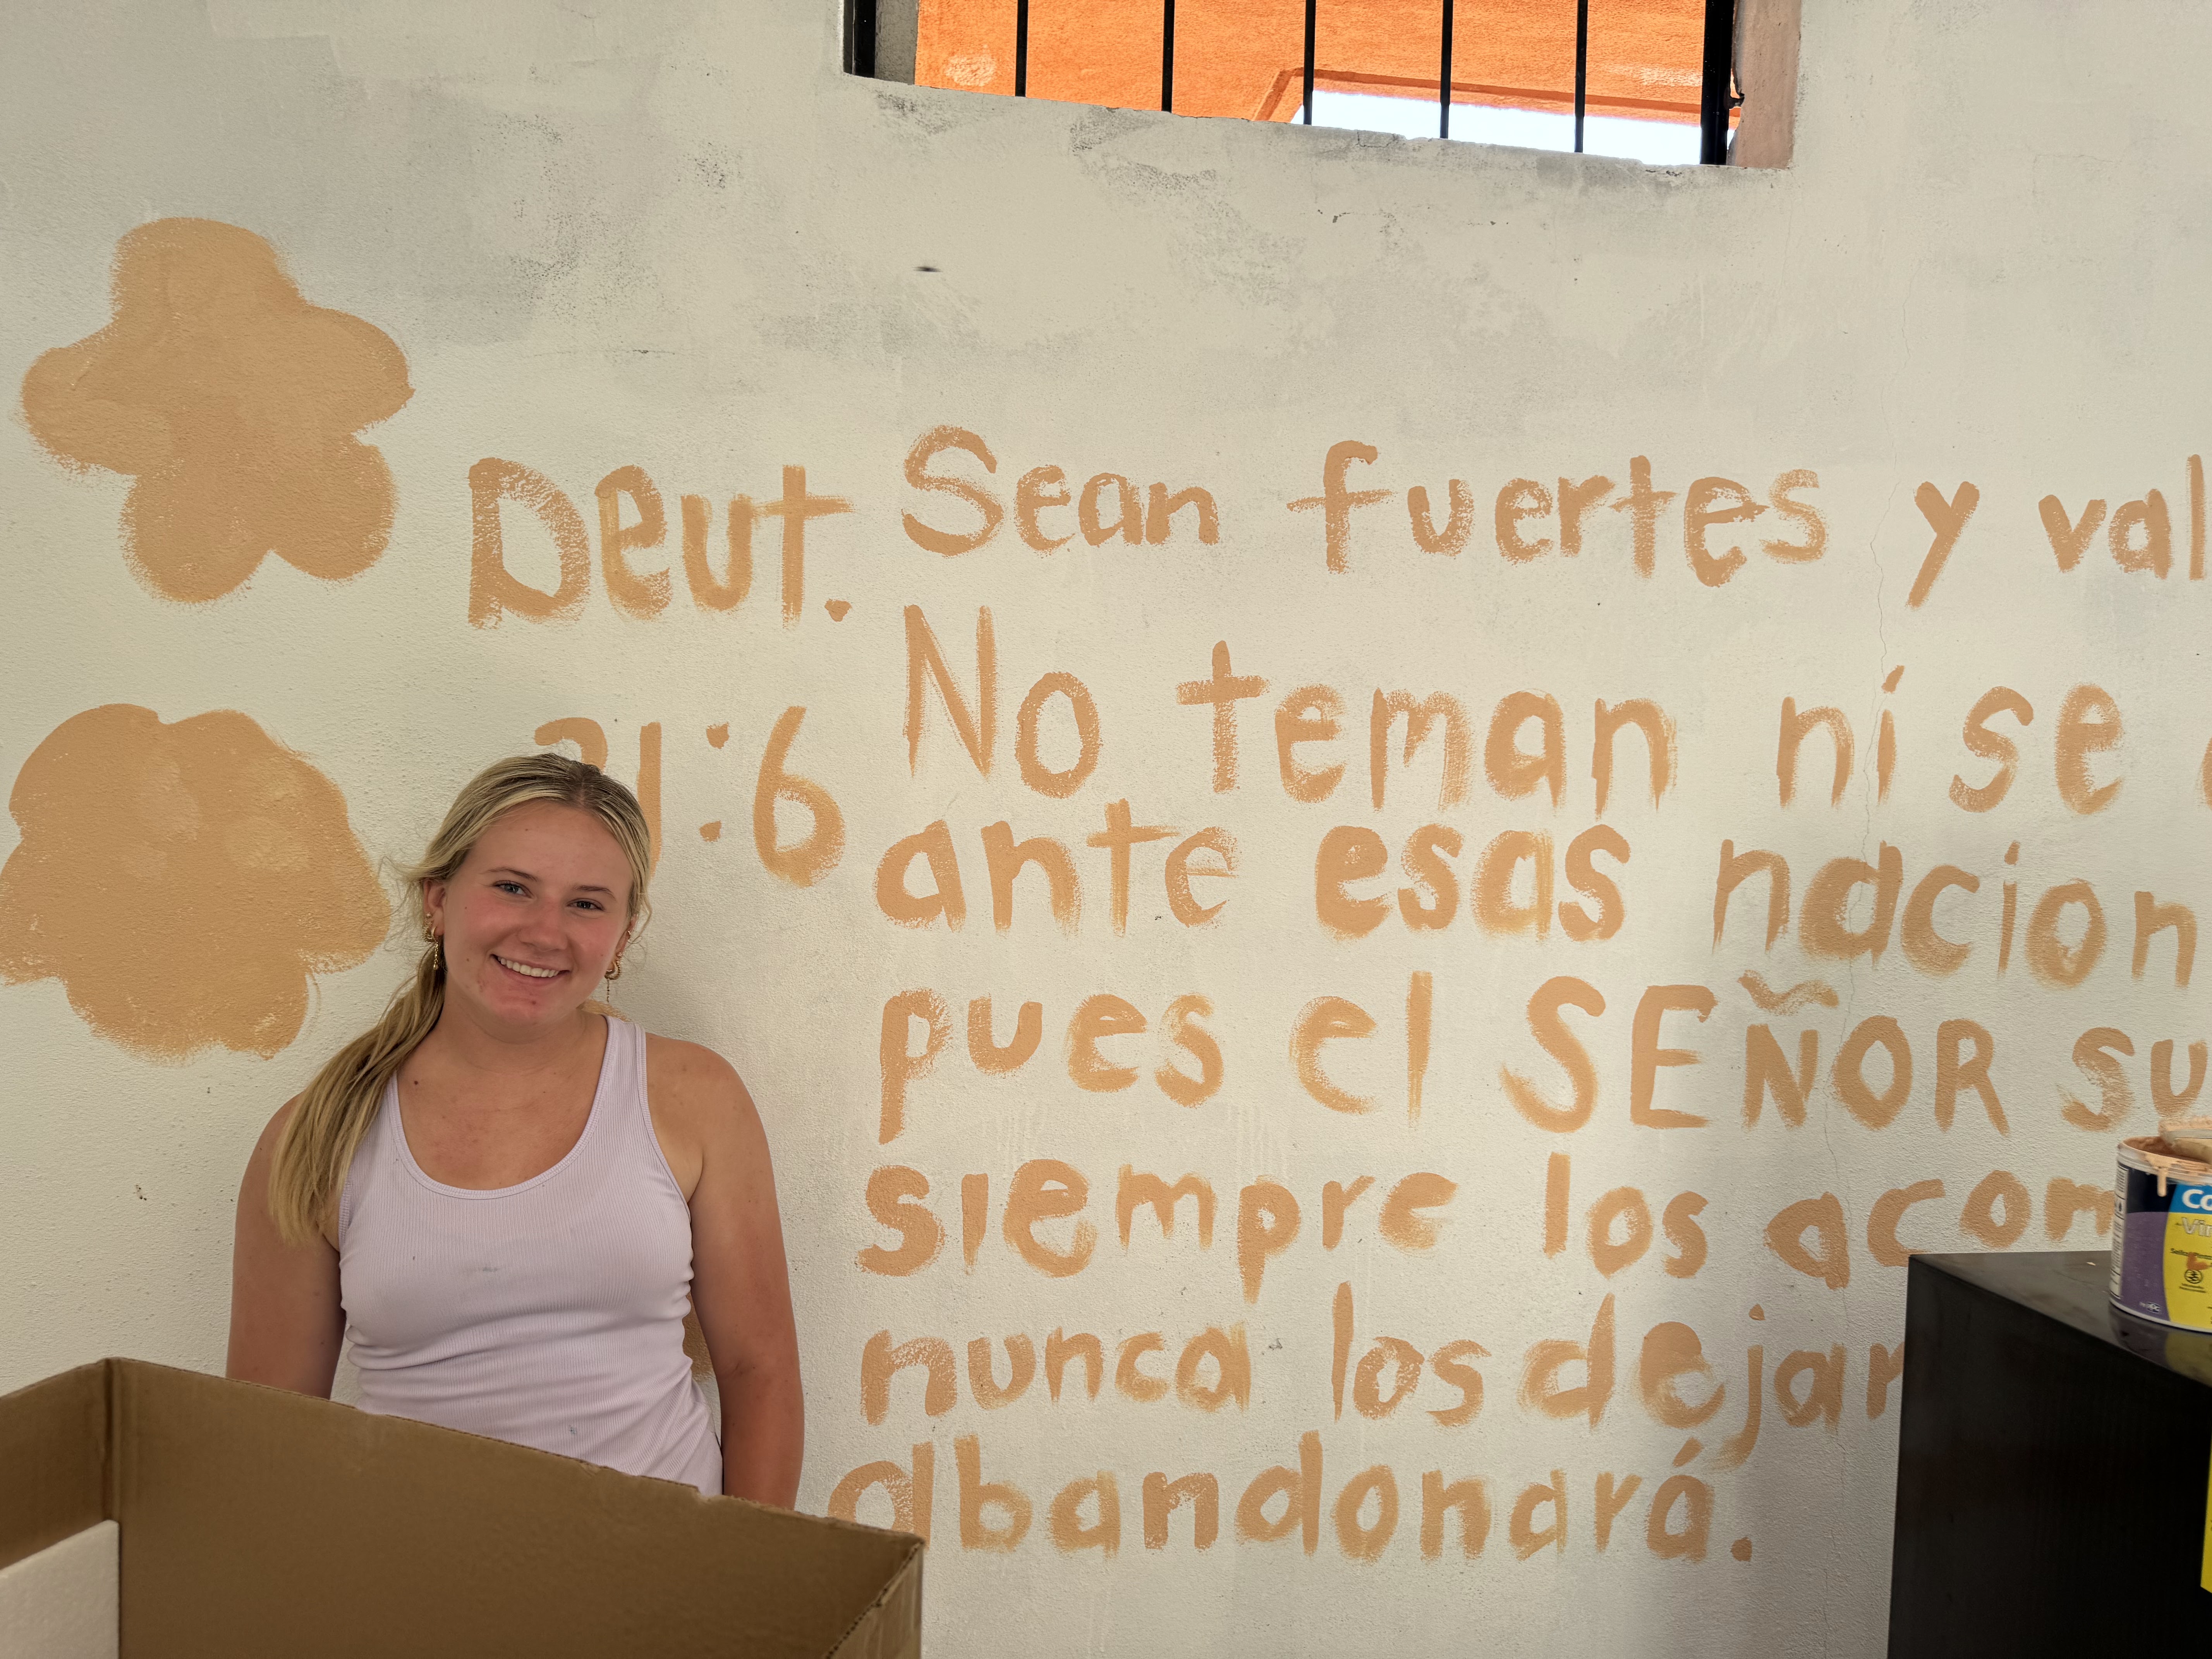 Deut.
31:6
Sean fuertes y val
No teman ni se
ante esas nacion
pues el SEÑOR su
siempre los acom
nunca los dejar
abandonará.